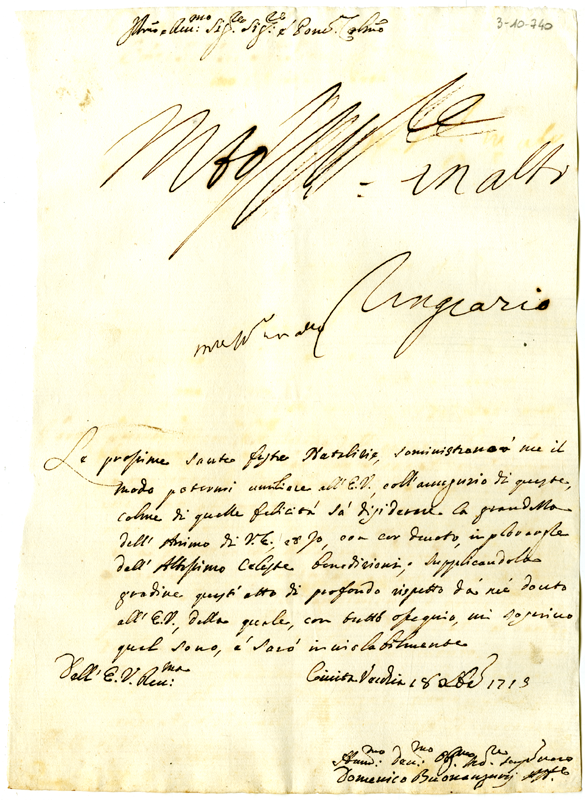 3-10-740
Illmo e Rev: mo Sig.re Sig.re e Pone Colmo
in alto
Ringrazio
Le prossime sante feste Natalizie, soministrano à me il
modo potermi umiliare all'E.V., coll'augurio di queste,
colme di quelle felicità sà desiderare la grandezza
dell'Animo di V.E., ed Io, con cor devoto, imploramgle
dall'Altissimo Celeste benedizioni; supplicandola
gradire quest'atto di profondo rispetto dà me douto
all'E.V., della quale, con tutto ossequio, mi
qual sono, e sarò inviolabilmente
Dell'E.V. Rev: ma
Civita Vecchia 18 Xbre 1713
Humil: mo Dev: mo
Domenico Buonanzuoi